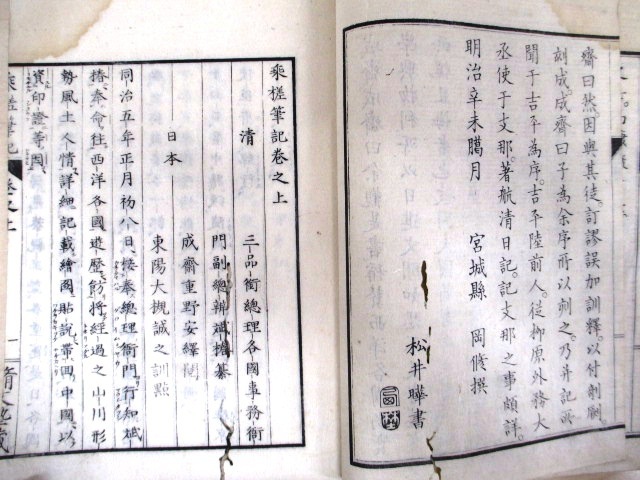 齋曰然因與其徒訂謬誤加訓釋以付剞劂
刻成成齋曰子為余序所以刻之乃并記所
聞于吉平為序吉平陸前人従柳原外務大
丞使于支那著航清日記記支那之事頗詳
明治辛未臘月　宮城縣　岡脩撰
松井曄書
乘槎筆記卷之上
清　三品銜總理各國事務衙
門副總辨斌椿纂
日本　成齋重野安繹閲
東陽大槻誠之訓點
同治五年正月初八日接奉總理衙門行知斌
椿奉命往西洋各國遊歷飭將經過之山川形
勢風土人情詳細記載繪圖貼說帶回中國以
資印證等因
乘槎筆記